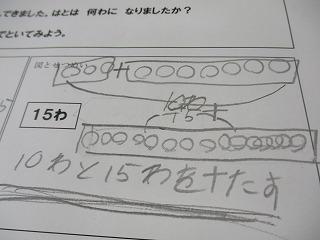 できました。はとは 何わに なりましたか？
でといてみよう。
図とせつめい
+
15
+
15わ
10わと15わを十たす